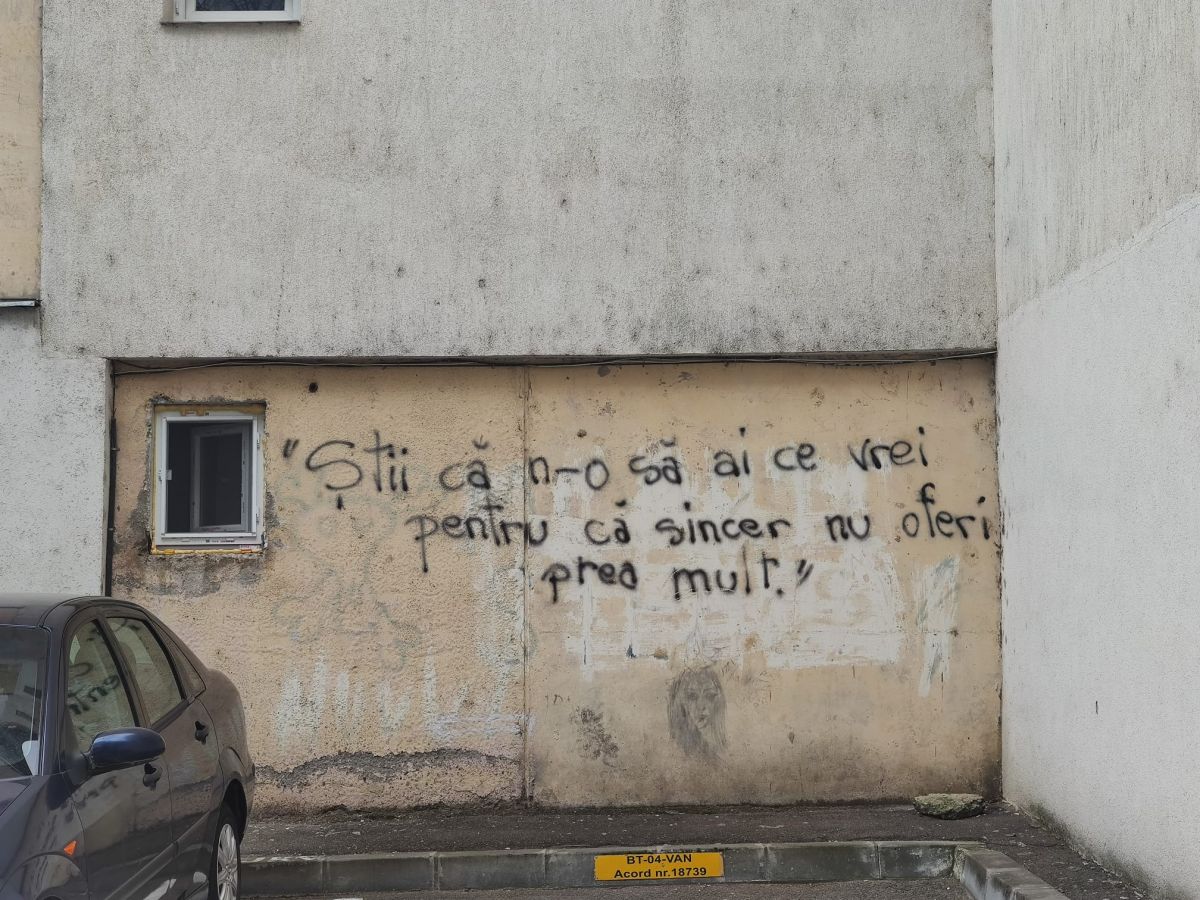 "Știi că n-o să ai ce vrei
pentru că sincer nu oferi
prea mult."
BT-04-VAN
Acord nr.18739